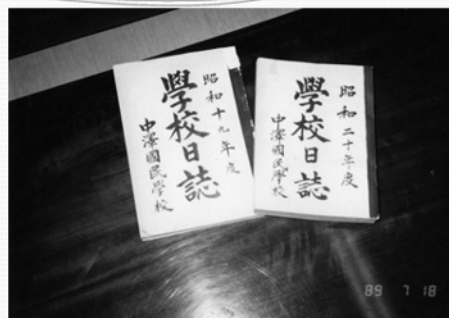 昭和十九年度
學校日誌
中澤國民學校
昭和二十年度
學校日誌
中澤國民學校
89 7 18